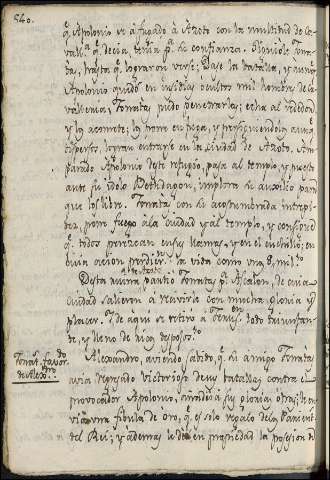 540.
q.e Apolonio se à fugado à Azoto con la multitud de Ca-
vall.a q.e decia, tenia p.a su confianza. Siguiole Jona-
tas, hasta q.e lograron verse; Dase la batalla, y aunq.e
Apolonio quedó en insidias ocultos mil hombres de Ca-
valleria, Jonatas pudo penetrarlas; echa al rededor
y los acomete; los pone en fuga, y persiguiendolos aunq.e
dispersos, logran entrarse en la Ciudad de Azoto. Am-
parado Apolonio deste refugio, pasa al templo, y puesto
ante su idolo Bethdagon, implora su auxilio para
que los libre. Jonatas con su acostumbrada intrepi-
dez, pone fuego àla Ciudad y al templo, y consigue
q.e todos perezcan en sus llamas, y en el cuchillo; en
cuia accion perdier.n la vida como unos 8. mil h.s
Desta accion partió Jonatas p.a Ascalon, de cuia
Ciudad salieron à recivirlo con mucha gloria y
placer. Y de aqui se retiró à Jerus.n todo triunfan-
te, y lleno de ricos despojos.
Jonat.s favor.do
de Alex.ro
Alexandro, aviendo sabido, q.e su amigo Jonatas
avia regresado victorioso de sus batallas contra el
provocador Apolonio, añadió à sus glorias otras; le en-
via una fibula de oro, q.e es solo regalo de los Parient.s
del Rei; y ademas le dá en propriedad la posesion de